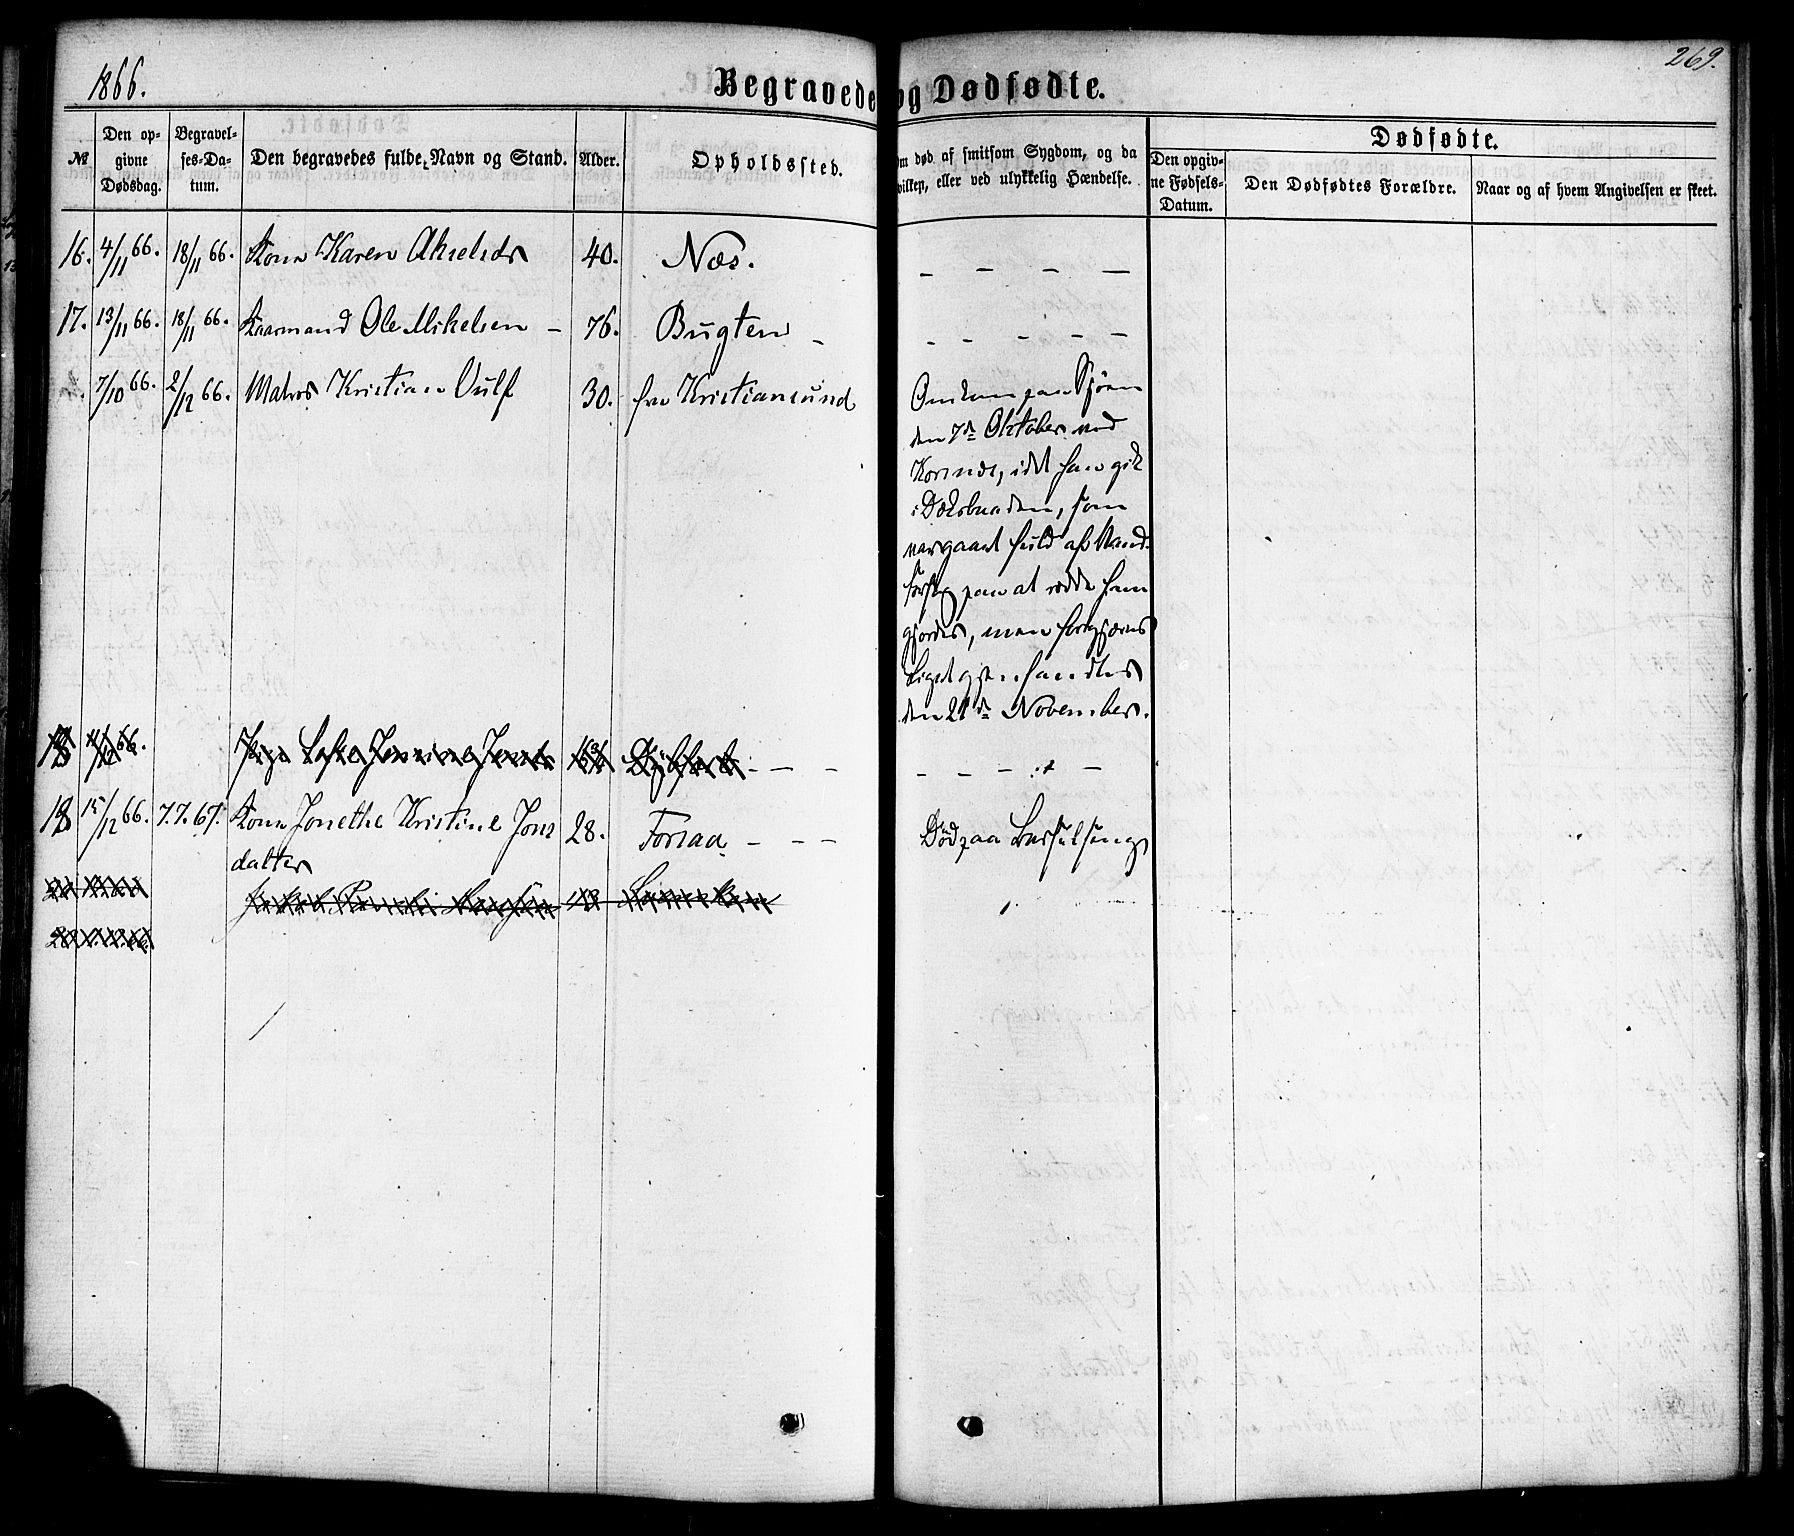 1866.
269.
Begravede og Dødfødte.
№
Den opgivne Dødsdag.
Begravelses-Datum.
Den begravedes fulde Navn og Stand.
Alder.
Opholdssted.
Om død af smitsom Sygdom, og da
hvilken, eller ved ulykkelig Hændelse.
Dødfødte.
Den opgivne Fødsels-Datum.
Den Dødfødtes Forældre.
Naar og af hvem Angivelsen er skeet.
16. 4/11 66. 18/11 66. Kone Karen Akselsdr 40. Næs. – – – –
17. 13/11 66. 18/11 66. Kaarmand Ole Mikelsen – 76. Bugten – – – – – –
7/10 66. 2/12 66. Matros Kristian Vulf 30. fra Kristiansund Omkom paa Sjøen
den 7de Oktober ved
Korsnes, idet han gik
i Dæksbaaden, som
var gaaet fuld af Vand.
Forsøg paa at redde ham
gjordes, men forgjæves
Liget gjenfandtes
den 21de November.
11/12 66. Pige – – – – – –
18 15/12 66. 7.7.67. Kone Jonethe Kristine Jons 28. Forsaa – – – Død paa Barselseng
datter